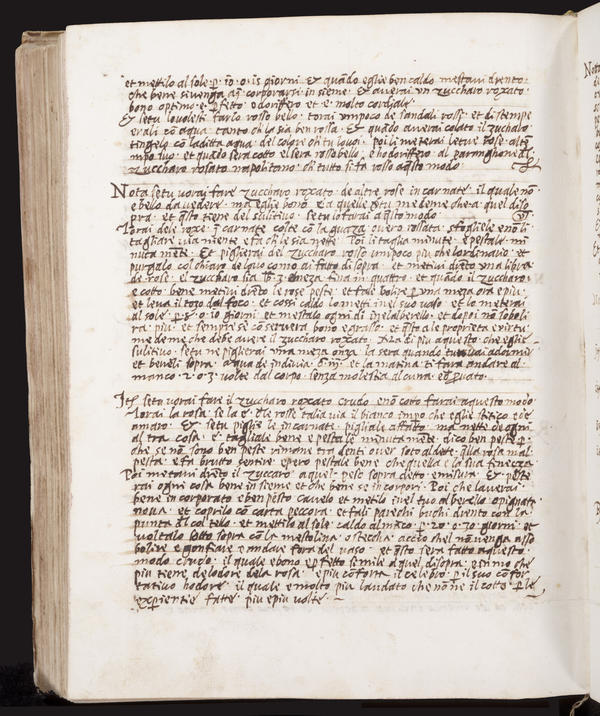 et mettilo al sole · p · 10 · o · 15 giorni · Et quādo eglie ben caldo mestavi drento
che bene si venga ad corporarsi insieme · Et averai un zuccharo roxato
bono optimo e perfetto · odoriffero et e molto cordiale
Et se tu lo volesti farlo rosso bello · torai un poco de sandali rossi · et distempe
erali cō aqua · tanto ch la sia ben rossa · Et quādo averai colato il zucharo
tingelo cō la ditta aqua · del colore ch tu lo voi · poi li meterai le tue rose
et quādo sera cotto el sera rosso bello e hodoriffero
zuccharo rosato napolitano · ch tutto si fa rosso a q̄sto modo
Nota se tu vorai fare zuccharo roxato de altre rose incarnate · il quale nō
e bello da vedere · ma eglie bono e a quelle virtu medeme che a quel diso
pra · et q̄sto tiene del sulitivo · se tu lo farai a q̄sto modo
Torai dele roxe incarnate coste cō la guaza overo rossata · sfoglielle e nō li
tagliare via niente e fa ch le sia nette · Poi le taglia minute e pestale mi
nuta mēte · Et pigherai del zuccharo rosso un poco piu che lordinario et
purgalo col chiaro de lovo como ai fatto di sopra · et metivi drēto una libra
de rose · e zuccharo sia lb · 3 · onza fina in quattro · et quando il zuccharo
e cotto bene metivi drēto le rose peste · et fale bolire p una meza ora e piu
et leva il toto dal foco · et cossi caldo lo metti inel suo vaso · et lo meterai
al sole p · 8 · o · 10 giorni et mestalo ogni di inel alberello · et dopoi nō sboli
ra piu · et sempre se cōservera bono e grasso · et q̄sto a le proprieta e virtu
medeme che debe avere il zuccharo roxato · Ma di piu a questo che eglie
sulitivo · se tu ne pigherai una meza onza la sera quando tu vai a dormir
et beveli sopra aqua de indivia · et la matina ti fara andare al
manco · 2 · o · 3 · volte dal corpo · senza molestia alcuna
Itē se tu vorai fare il zuccharo roxato crudo e nō cotto farai a questo modo
Torai la rosa · se la e dele rosse talia via il bianco che eglie stitico e de
amaro · Et se tu piglie le incarnate · pigliale affatto · ma nette de ogni
altra cosa · e tagliale bene e pestale minuta mēte · dico ben peste p
che se nō sono ben peste rimane tra denti over sotto al dete · q̄lla rosa mal
pesta · e fa brutto sentire · e pero pestale bene che quella e la sua finezza
Poi metavi drēto il zuccaro a quel peso sopra detto · e misura · Et peste
rai ogni cosa bene insieme et che bene se incorpori · Poi che laverai
bene incorporato e ben pesto cavelo et metilo inel tuo alberello o pignata
nova · et coprilo cō carta peccora · et fali parechi bughi drento con la
punta di col tello · et mettilo al sole caldo al māco · p · 20 · o · 30 · giorni · et
voltalo sotto sopra cō la mestolina · o stecha · accio chel non venga asso
bolire e gonfiare e andare fora del vaso · et q̄sto sera fatto a questo
modo crudo · il quale e bono e p̄fetto simile a quel disopra
piu tiene delodore dela rosa · e piu cōforta il celebro · p il suo cōfor
tativo hodore · il quale e molto piu laudato che nō ne il cotto · p le
experientie fatte · piu e piu volte